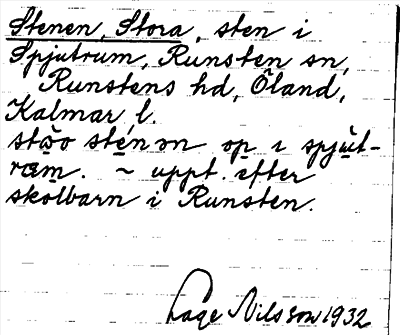 Stenen, Stora, sten i
Spjutrum, Runsten sn,
Runstens hd, Öland,
Kalmar l.
sten op ı spjut-
ræm. ~ uppt. efter
skolbarn i Runsten.
Lage Nilsson 1932